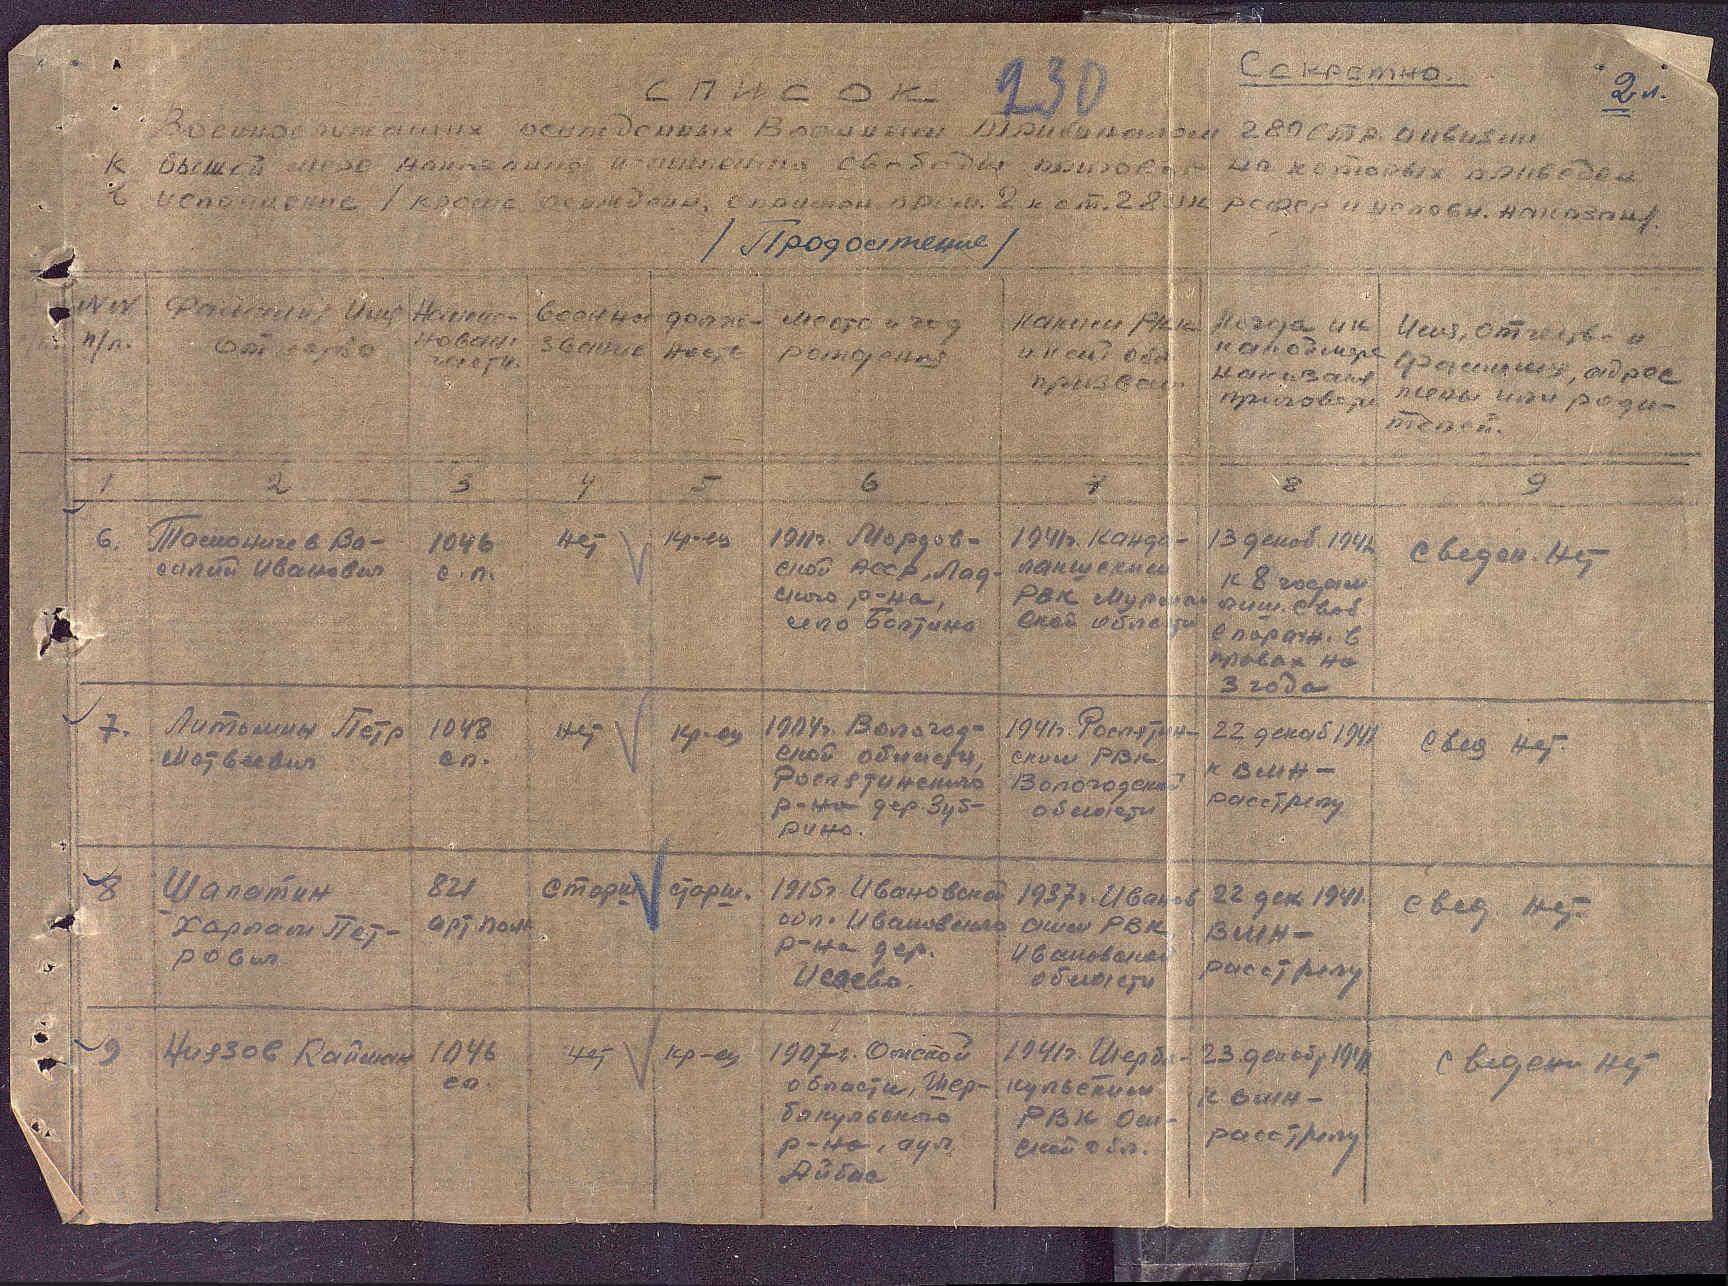 Секретно.
2 л.
230
СПИСОК
Военнослужащих осужденных Военным Трибуналом 280 стр. дивизии
к высшей мере наказания и лишению свободы приговора на которых приведен
в исполнение / кроме осужден. с примен. прим. 2 к ст. 28 УК РСФСР и условн. наказан/.
/Продолжение/
NN п/п.
Фамилия, Имя отчество
Наимено-
вован.
части.
Военное звание
долж-
ность
Место и год рождения
Каким РВК
и кем был
призван
Когда и к
какой мере
наказания
приговорен
Имя, отчество и
фамилия, адрес
жены или роди-
телей.
1 2 3 4 5 6 7 8 9
6.
Василий Иванович
1046
с.п.
нет
кр-ец
1911г. Мордов-
ской АССР, Лад-
ского р-на,
село Болтино
1941г. Канда-
лакшским
РВК Мурман
ской области
13 декаб 1941
к 8 годам
лиш. своб
с пораж. в
правах на
3 года
Сведен. нет
7.
Литомин Петр
Матвеевич
1048
сп.
нет
кр-ец
1904г. Вологод-
ской области,
Рослятинского
р-на дер. Зуб-
рино.
1941г. Рослятин-
ским РВК
Вологодской
области
22 декаб 1941
к ВМН-
расстрелу
Свед нет.
8
Шалатин
Харлам Пет-
рович
821
арт полк
Старш
старш.
1915г. Ивановской
обл. Ивановского
р-на дер.
Исаево.
1937г. Иванов
ским РВК
Ивановской
области
22 дек 1941.
ВМН-
расстрелу
Свед нет.
9
Ниязов Кайман
1046
сп.
нет
кр-ец
1907г. Омской
области, Шер-
бакульского
р-на, аул
Айбас
1941г. Шерба-
кульским
РВК Ом-
ской обл.
23 декабр 1941
к ВМН-
расстрелу
Сведени нет